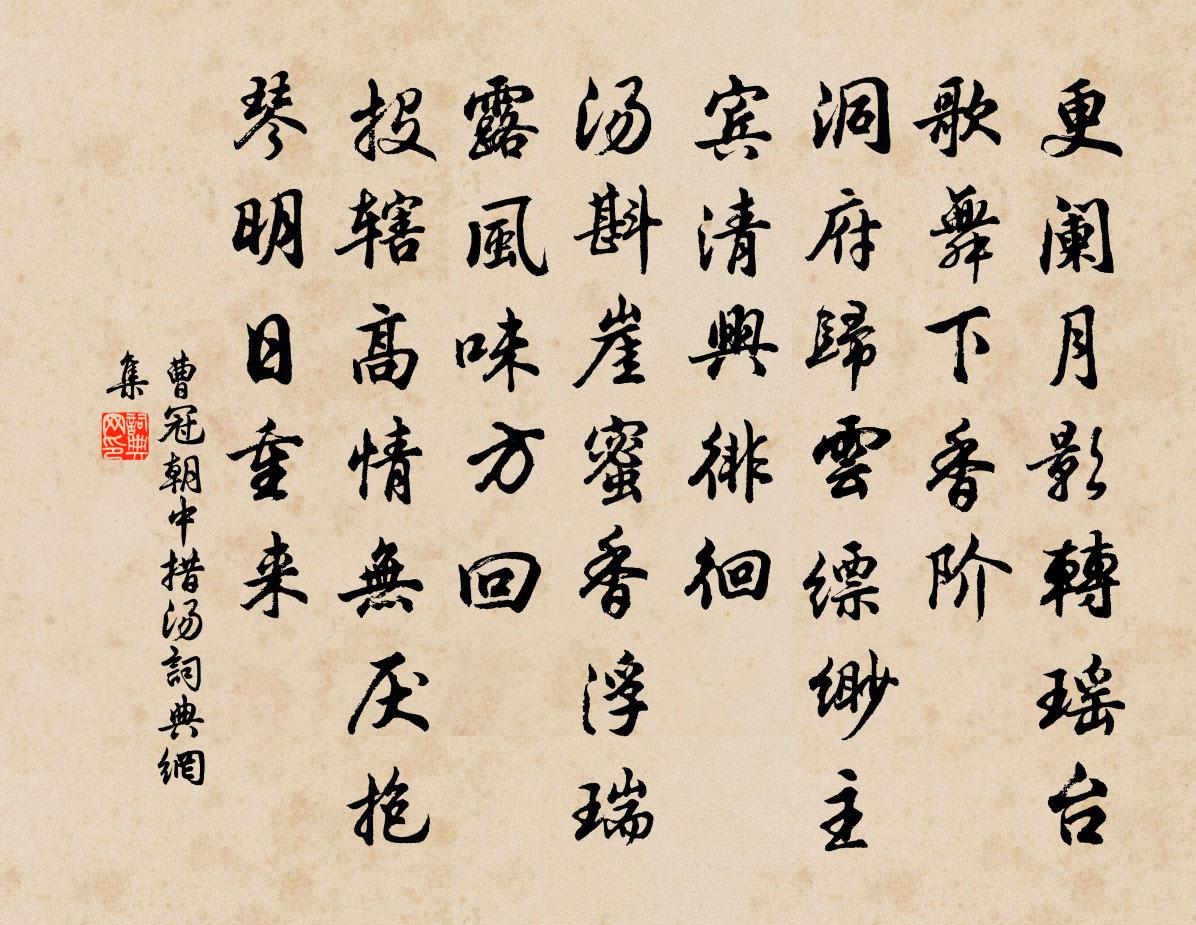 更阑月影轉瑶台
歌舞下香阶
洞府歸雲缥缈主
宾清興徘徊
汤斟崖蜜香浮瑞
露風味方回
投辖高情無厌抱
琴明日重来
曹冠朝中措汤詞典網
集
詞典网印